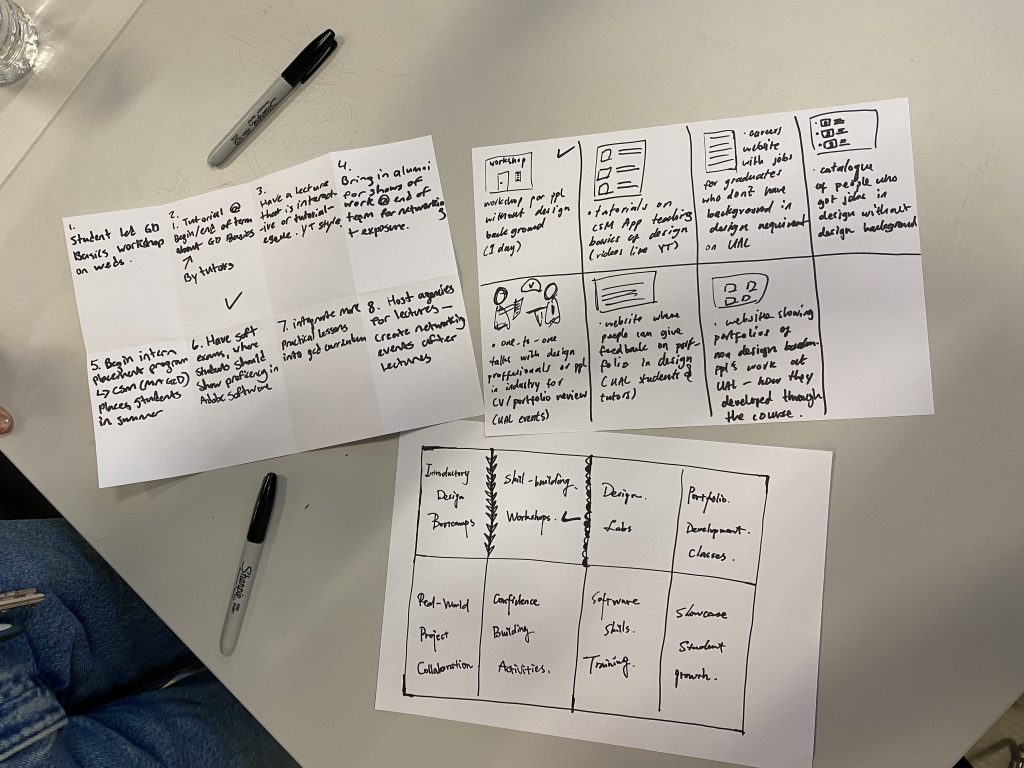 Sharpie
1.
Student led GD
Basics workshop
on weds.
2. Tutorial @
Begin/end of term
about GD Basics
By tutors
✓
3.
Have a lecture
that is interact-
ive or tutorial-
esque. YT style.
4.
Bring in alumni
for shows of
work @ end of
team for networking
+ exposure.
5. Begin intern
placement program
↳ CSM (MA GCD)
Places students
in summer
6. Have soft
exams, where
students should
show proficiency in
Adobe Software
7. integrate more
practical lessons
into gcd curriculum
8. Host agencies
for lectures —
create networking
events after
lectures
workshop
✓
workshop for ppl
without design
background
(1 day)
• tutorials on
CSM App teaching
basics of design
(videos like YT)
• careers
website
with jobs
for graduates
who don't have
background in
design requirement
on UAL
• catalogue
of people who
got jobs in
design without
design background
• one-to-one
talks with design
professionals or ppl
in industry for
CV/portfolio review
(UAL events)
• website where
people can give
feedback on port-
folio in design
(UAL students &
tutors)
• website showing
portfolios of
non design
ppl's work at
UAL – how they
developed through
the course.
Introductory
Design
Bootcamps
Skill-building.
Workshops. ✓
Design.
Labs
Portfolio.
Development.
Classes.
Real-World
Project
Collaboration
Confidence
Building
Activities.
Software
Skills.
Training.
Showcase
Student
growth.
Sharpie